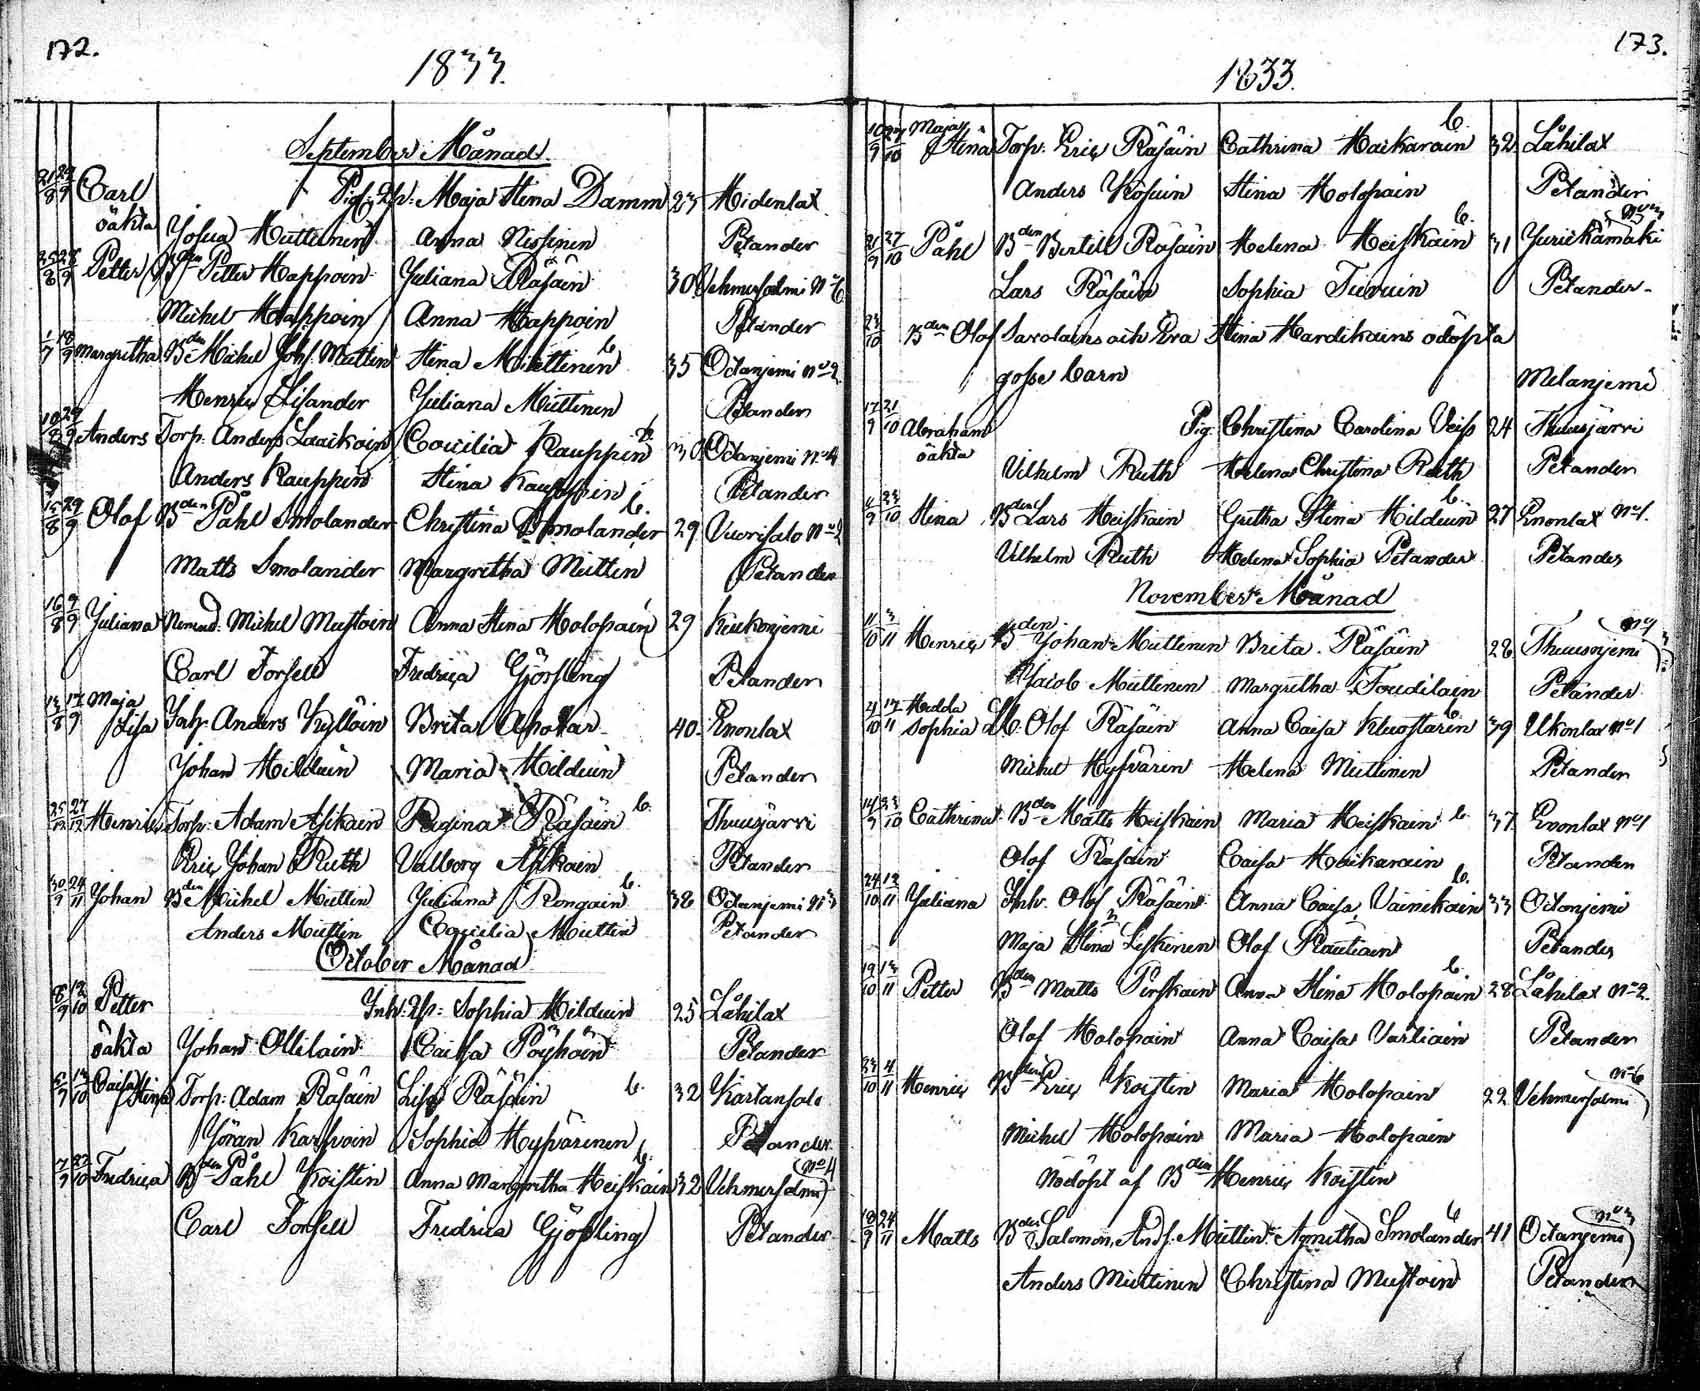 172.
1833.
September Månad.
21/8 22/9 Carl Pig. Maja Stina Damm 23 Hidenlax
oäkta Josua Miettinen Anna Nissinen Petander
25/8 Petter Bden Petter Happoin Juliana Räsäin 30 Vehmersalmi No 6
Michel Happoin Anna Happoin Petander
Margretha Bden Michel Johs. Miettin Stina Miettinen b. 35 Oitanjemi No 2
Henric Lisander Juliana Miettinen Petander
29/9 Anders Torp. Anders Laackoin Coecilia Kauppin b. 30 Oitanjemi No 4
Anders Kauppin Stina Kauppin Petander
15/8 29/9 Olof Bden Påhl Smolander Christina Smolander b. 29 Vuorisalo No 2
Matts Smolander Margretha Miettin Petander
16/8 Juliana Michel Mustoin Anna Stina Holopain 29 Keikonjemi
Carl Forsell Fredrica Gjösling Petander
13/8 17/9 Maja
Lisa Inh. Anders Kyllöin Brita 40 Enonlax
Johan Hilduin Maria Hilduin Petander
25/12 27/12 Henric Torp. Adam Asikain Regina Räsäin b. Thuusjärvi
Eric Johan Ruth Valborg Asikain Petander
30/9 24/11 Johan Bden Michel Miettin Juliana Rongain b. 38 Oitanjemi No 3
Anders Miettin Coecilia Miettin Petander
October Månad
8/9 12/10 Petter Inh. Sophia Hilduin 25 Låhilax
oäkta Johan Ollilain Caisa Pöyhöin Petander
13/10 Caisa Stina Torp. Adam Räsäin Lisa Räsäin b. 32 Kartansalo
Jöran Karfvoin Sophia Hyfvärinen Petander
7/9 22/10 Fredrica Bden Påhl Koistin Anna Margretha Heiskain b. 32 Vehmersalmi No 4
Carl Forsell Fredrica Gjösling Petander
173.
1833.
10/9 Maja
Stina Torp. Eric Räsäin Cathrina Haikarain b. 32 Låhilax
Anders Kosuin Stina Holopain Petander
21/9 27/10 Påhl Bden Bertill Räsäin Helena Heiskain b. 31
Lars Räsäin Sophia Petander
23/10 Bden Olof Savolains och Eva Stina Hardikains odöpta
gosse barn Melanjemi
17/9 21/10 Abraham Pig. Christina Carolina Veiss 24 Thuusjärvi
oäkta Vilhelm Ruth Helena Christina Ruth Petander
23/10 Stina Bden Lars Heiskain Gretha Stina Hilduin b. 27 Enonlax No 1.
Vilhelm Ruth Helena Sophia Petander Petander
November Månad
11/10 3/11 Henric Bden Johan Miettinen Brita Räsäin 28
Jacob Miettinen Margretha Toudilain Petander
4/10 17/11 Hedda
Sophia Olof Räsäin Anna Caisa b. 39 Ukonlax No 1
Michel Hyfvärin Helena Miettinen Petander
14/9 23/10 Cathrina Bden Matts Heiskain Maria Heiskain b. 37 Enonlax No 1
Olof Räsäin Caisa Haikarain Petander
24/10 12/11 Juliana Inh. Olof Räsäin Anna Caisa Vainikain b. 33 Oitonjemi
Maja Stina Leskinen Olof Rautiain Petander
19/10 13/11 Petter Bden Matts Pirskain Anna Stina Holopain b. 28 Låhilax No 2.
Olof Holopain Anna Caisa Vartiain Petander
23/10 4/11 Henric Bden Eric Koistin Maria Holopain 22 Vehmersalmi No 6
Michel Holopain Maria Holopain
Nödöpt af Bden Henric Koistin
18/9 24/11 Matts Bden Salomon Ands. Miettin Agnetha Smolander b. 41 Oitanjemi No 3
Anders Miettinen Christina Mustoin Petander